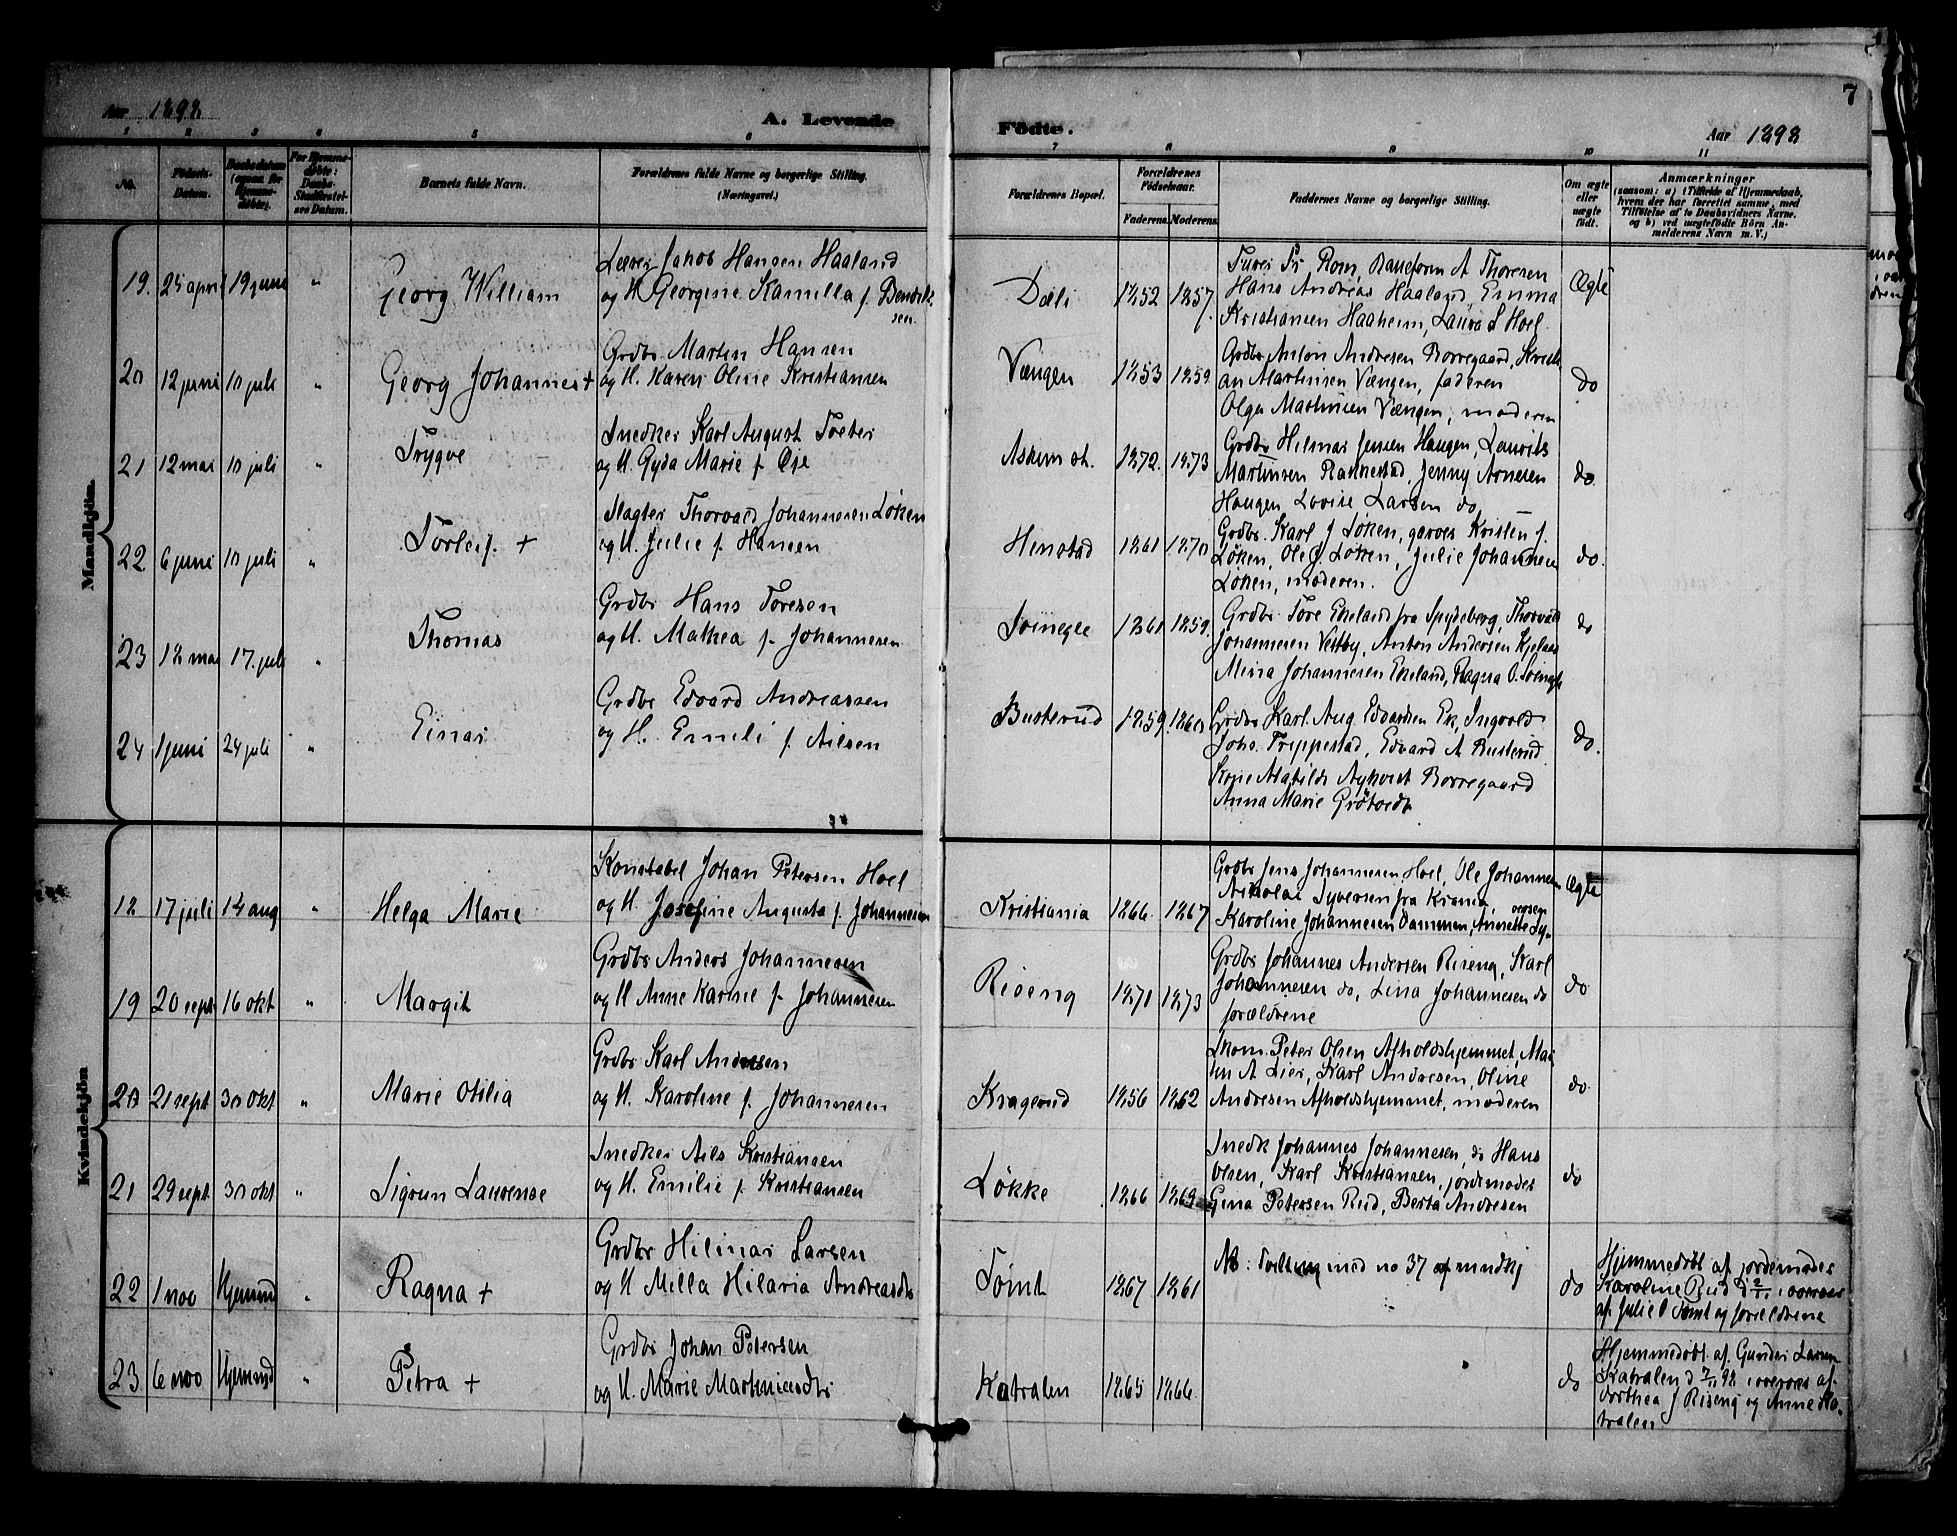 Aar 1898
A. Levende
Födte.
Aar 1898
7
1 2 3 4 5 6 7 8 9 10 11
No.
Födsels-Datum.
Daabsdatum
Barnets fulde Navn.
Forældrenes fulde Navne og borgerlige Stilling.
(Næringsvei.)
Forældrenes Bopæl.
Forældrenes Födselsaar.
Faderens. Moderens.
Faddernes Navne og borgerlige Stilling.
Om ægte eller uægte födt.
Anmærkninger
(saasom: a) i Tilfælde af Hjemmedaab,
hvem der har forrettet samme, med
Tilföielse af to Daabsvidners Navne.
og b) ved uægtefödte Börn An-
melderens Navn m. V.)
Mandkjön.
19. 25 april 19 juni " Georg William
Jakob Hansen Haaland
og H. Georgine Kamilla f. Bendik
sen.
Dæli 1852 1857.
Rom, A Thoresen
Hans Andreas Haaland, Emma
Kristiansen Haaheim, Laura S Hoel.
Ægte
20 12 juni 10 juli " Georg Johannes +
Grdbr Martin Hansen
og H. Karen Oline Kristiansen
Vængen 1853 1859
Grdbr Anton Andresen Borregaard, Kristi
an Martinsen Vængen, faderen
Olga Martinsen Vængen, moderen
do
21 12 mai 10 juli " Trygve
Snedker Karl August
og H. Gyda Marie f. Øie
Askim st. 1872. 1873
Grdbr Hilmar Jensen Haugen, Laurits
Martinsen Jenny Arnesen
Haugen Lovise Larsen do
do.
22 6 juni 10 juli " Torleif. +
Slagter Thorvald Johannesen Løken
og H. Julie f. Hansen
Henstad 1861 1870
Grdbr. Karl J Løken, Kristen J.
Løken, Ole J. Løken, Julie Johannesen
Løken, moderen.
do.
23 18 mai 17. juli " Thomas
Grdbr Hans Toresen
og H. Mathea f. Johannesen
1861 1859.
Grdbr. Tore Ekeland fra Spydeberg, Thorvald
Johannesen Vestby, Anton Andersen
Mina Johannesen Ekeland, Ragna O.
do
24 1 juni 24 juli " Einar
Grdbr Edvard Andreassen
og H. Emili f. Nilsen
Busterud 1859 1860
Grdbr. Karl Aug. Edvardsen Ek, Ingvold
Johs. Trippestad, Edvard A Busterud
Kone Matilde Borregaard
Anna Marie
do.
Kvindekjön
18 17 juli 14 aug " Helga Marie
Konstabel Johan Petersen Hoel
og H. Josefine Augusta f. Johannesen
Kristiania 1866. 1867
Grdbr Jens Johannesen Hoel, Ole Johannesen
Nikolai Syversen fra Krania,
versen
Karoline Johannesen Dammen, Annette Sy-
Ægte
19 20 sept 16 okt " Margit
Grdbr Anders Johannesen
og H Anne Karine f. Johannesen
Riseng 1871 1873
Grdbr Johannes Andersen Riseng, Karl
Johannesen do, Lina Johannesen do
forældrene
do
20 21 sept 30 okt " Marie Otilia
Grdbr Karl Andresen
og H. Karoline f. Johannesen
Kragerud 1856 1862
Skom. Peter Olsen Afholdshjemmet, Mar
tin A Lier, Karl Andresen, Oline
Andresen Afholdshjemmet, moderen
do.
21 29 sept 30 okt " Sigrun Laurense
Snedker Nils Kristiansen
og H. Emilie f. Kristiansen
Løkke 1866 1869
Snedk Johannes Johannesen, do Hans
Olsen, Karl Kristiansen, jordemoder
Gina Petersen Rud, Berta Andresen
do
22 1 nov Hjemmd " Ragna +
Grdbr Hilmar Larsen
og H Milla Hilaria Andreasdtr
Tømt 1867 1861
Nb: Tvilling med no 37 af mndkj
do
Hjemmedøbt af jordemoder
Karoline Rud d 2/11 i overvær
af Julie O Tømt og forældrene
23 6 nov Hjemmd " Petra +
Grdbr Johan Petersen
og H. Marie Martiniusdtr
Katralen 1865 1866.
do
Hjemmedøbt af Gunder Larsen
Katralen d 7/11 98 i overvær af
Dorthea J Riseng og Anne Ka-
tralen